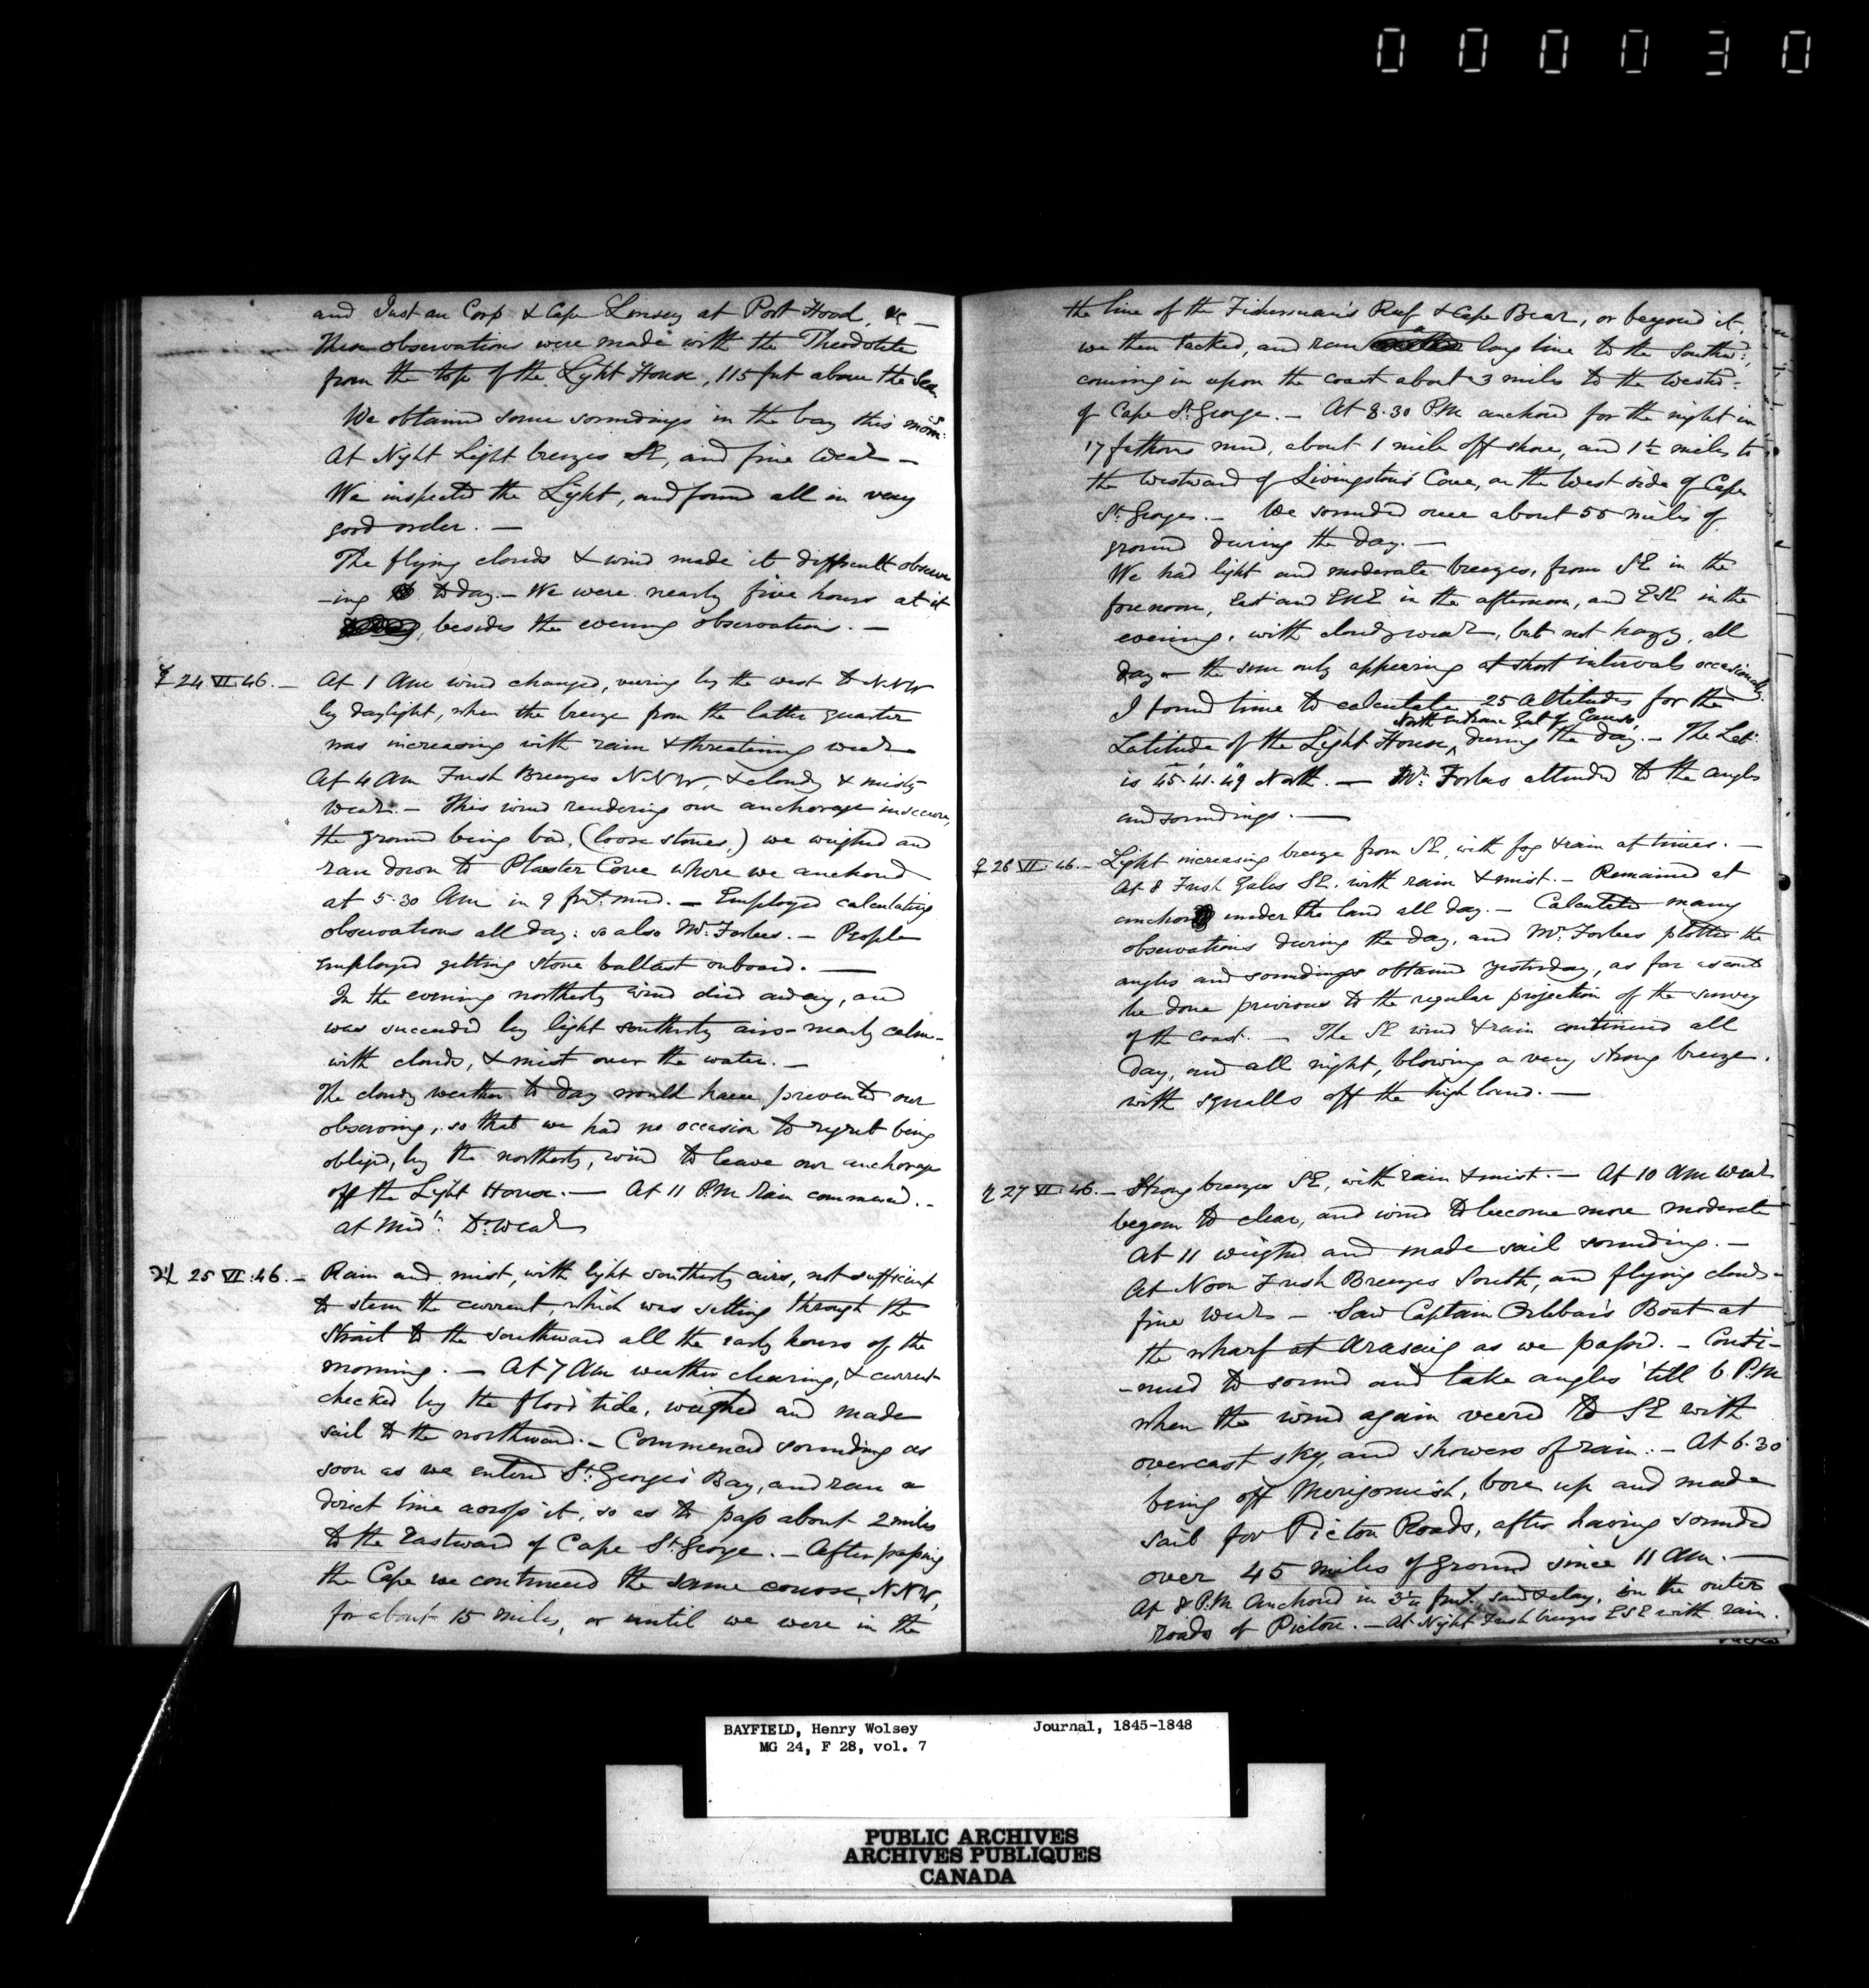 000030
and Just au Corp & Cape Linsey at Port Hood, &c —
These observations were made with the Theodolite
from the top of the Light House, 115 feet above the Sea
We obtained some soundings in the bay this morng:
At Night Light breezes SE, and fine Weatr —
We inspected the Light, and found all in very
good order. —
The flying clouds & wind made it difficult observ
-ing to day. — We were nearly five hours at it
besides the evening observations. —
☿ 24 VI. 46. — At 1 AM wind changed, veering by the west to NNW
by daylight, when the breeze from the latter quarter
was increasing with rain & threatening weatr
At 4 AM Fresh Breezes NNW, & cloudy & misty
Weatr. — This wind rendering our anchorage insecure,
the ground being bad, (loose stones,) we weighed and
ran down to Plaster Cove where we anchored
at 5.30 AM in 9 fms. mud. — Employed calculating
observations all day: so also Mr. Forbes. — People
employed getting stone ballast onboard. —
In the evening northerly wind died away, and
was succeeded by light southerly airs — nearly calm —
with clouds, & mist over the water. —
The cloudy weather to day would have prevented our
observing, so that we had no occasion to regret being
obliged, by the northerly, wind to leave our anchorage
off the Light House. — At 11 P.M rain commenced. —
at Midt: Do. Weatr
♃ 25 VI. 46. — Rain and mist, with light southerly airs, not sufficient
to stem the current, which was setting through the
Strait to the southward all the early hours of the
morning. — At 7 AM weather clearing, & current
checked by the flood tide, weighed and made
sail to the northward. — Commenced sounding as
soon as we entered St. George's Bay, and ran a
direct line across it, so as to pass about 2 miles
to the Eastward of Cape St. George. — After passing
the Cape we continued the same course, NNW,
for about 15 miles, or until we were in the
the line of the Fisherman's Reef & Cape Bear, or beyond it,
we then tacked, and ran a long line to the Southwd:
coming in upon the coast about 3 miles to the westwd:
of Cape St. George. — At 8.30 P.M anchored for the night in
17 fathoms mud, about 1 mile off shore, and 1½ miles to
the westward of Livingston's Cove, on the West side of Cape
St. Georges. — We sounded over about 55 miles of
ground during the day. —
We had light and moderate breezes, from SE in the
forenoon, East and ENE in the afternoon, and ESE in the
evening, with cloudy weatr, but not hazy, all
day — the sun only appearing at short intervals occasionally.
I found time to calculate 25 altitudes for the
North entrance Gut of Canso,
Latitude of the Light House, during the day. — The Lat:
is 45° 41' 49" North. — Mr. Forbes attended to the angles
and soundings. —
♀ 26 VI. 46. — Light increasing breeze from SE, with fog & rain at times. —
At 8 Fresh Gales SE. with rain & mist. — Remained at
anchor under the land all day. — Calculated many
observations during the day, and Mr. Forbes plotted the
angles and soundings obtained yesterday, as far as could
be done previous to the regular projection of the survey
of the coast. — The SE wind & rain continued all
day, and all night, blowing a very strong breeze,
with squalls off the high land. —
♄ 27 VI. 46. — Strong breezes SE, with rain & mist. — At 10 AM Weatr
began to clear, and wind to become more moderate
At 11 weighed and made sail sounding. —
At Noon Fresh Breezes South, and flying clouds —
fine Weatr — Saw Captain Orlebar's Boat at
the wharf at Arasaig as we passed. — Conti-
-nued to sound and take angles 'till 6 P.M
when the wind again veered to SE with
overcast sky, and showers of rain. — At 6.30
being off Merigomish, bore up and made
sail for Pictou Roads, after having sounded
over 45 miles of ground since 11 AM. —
At 8 P.M Anchored in 3¼ fms. sand & clay, in the outer
roads of Pictou. — At Night Fresh breezes ESE with rain.
BAYFIELD, Henry Wolsey Journal, 1845-1848
MG 24, F 28, vol. 7
PUBLIC ARCHIVES
ARCHIVES PUBLIQUES
CANADA